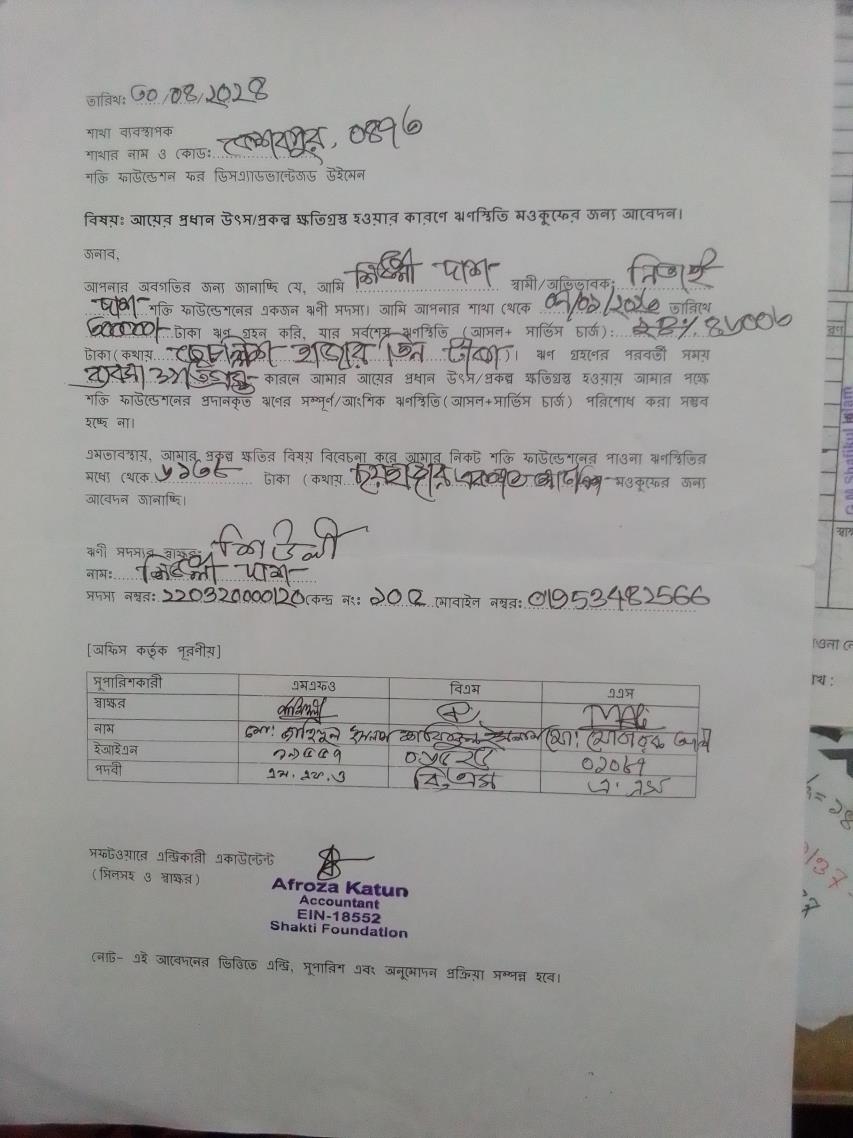 তারিখ: ৩০/০৪/২০২৪
শাখা ব্যবস্থাপক
শাখার নাম ও কোড: কেশবপুর, ০৪৭৬
শক্তি ফাউন্ডেশন ফর ডিসএ্যাডভান্টেজড উইমেন
বিষয়: আয়ের প্রধান উৎস/প্রকল্প ক্ষতিগ্রস্থ হওয়ার কারণে ঋণস্থিতি মওকুফের জন্য আবেদন।
জনাব,
আপনার অবগতির জন্য জানাচ্ছি যে, আমি শিউলী দাশ স্বামী/অভিভাবক: নিতাই
দাশ শক্তি ফাউন্ডেশনের একজন ঋণী সদস্য। আমি আপনার শাখা থেকে তারিখে
টাকা ঋণ গ্রহন করি, যার সর্বশেষ ঋণস্থিতি (আসল+ সার্ভিস চার্জ):
টাকা (কথায় হাজার তিন টাকা)। ঋণ গ্রহণের পরবর্তী সময়
ব্যবসা কারনে আমার আয়ের প্রধান উৎস/প্রকল্প ক্ষতিগ্রস্থ হওয়ায় আমার পক্ষে
শক্তি ফাউন্ডেশনের প্রদানকৃত ঋণের সম্পূর্ণ/আংশিক ঋণস্থিতি(আসল+সার্ভিস চার্জ) পরিশোধ করা সম্ভব
হচ্ছে না।
এমতাবস্থায়, আমার প্রকল্প ক্ষতির বিষয় বিবেচনা করে আমার নিকট শক্তি ফাউন্ডেশনের পাওনা ঋণস্থিতির
মধ্যে থেকে টাকা (কথায় মওকুফের জন্য
আবেদন জানাচ্ছি।
ঋণী সদস্যর স্বাক্ষর: শিউলী
নাম: শিউলী দাশ
সদস্য নম্বর: 220320000120 কেন্দ্র নং: মোবাইল নম্বর: 01953482566
[অফিস কর্তৃক পূরণীয়]
সুপারিশকারী এমএফও বিএম এএস
স্বাক্ষর
নাম মো: ইসলাম মো:
ইআইএন
পদবী এম. এফ. ও বি, এম এ. এস
সফটওয়ারে এন্ট্রিকারী একাউন্টেন্ট
(সিলসহ ও স্বাক্ষর)
Afroza Katun
Accountant
EIN-18552
Shakti Foundation
নোট- এই আবেদনের ভিত্তিতে এন্ট্রি, সুপারিশ এবং অনুমোদন প্রক্রিয়া সম্পন্ন হবে।
G.M Shafikul Islam